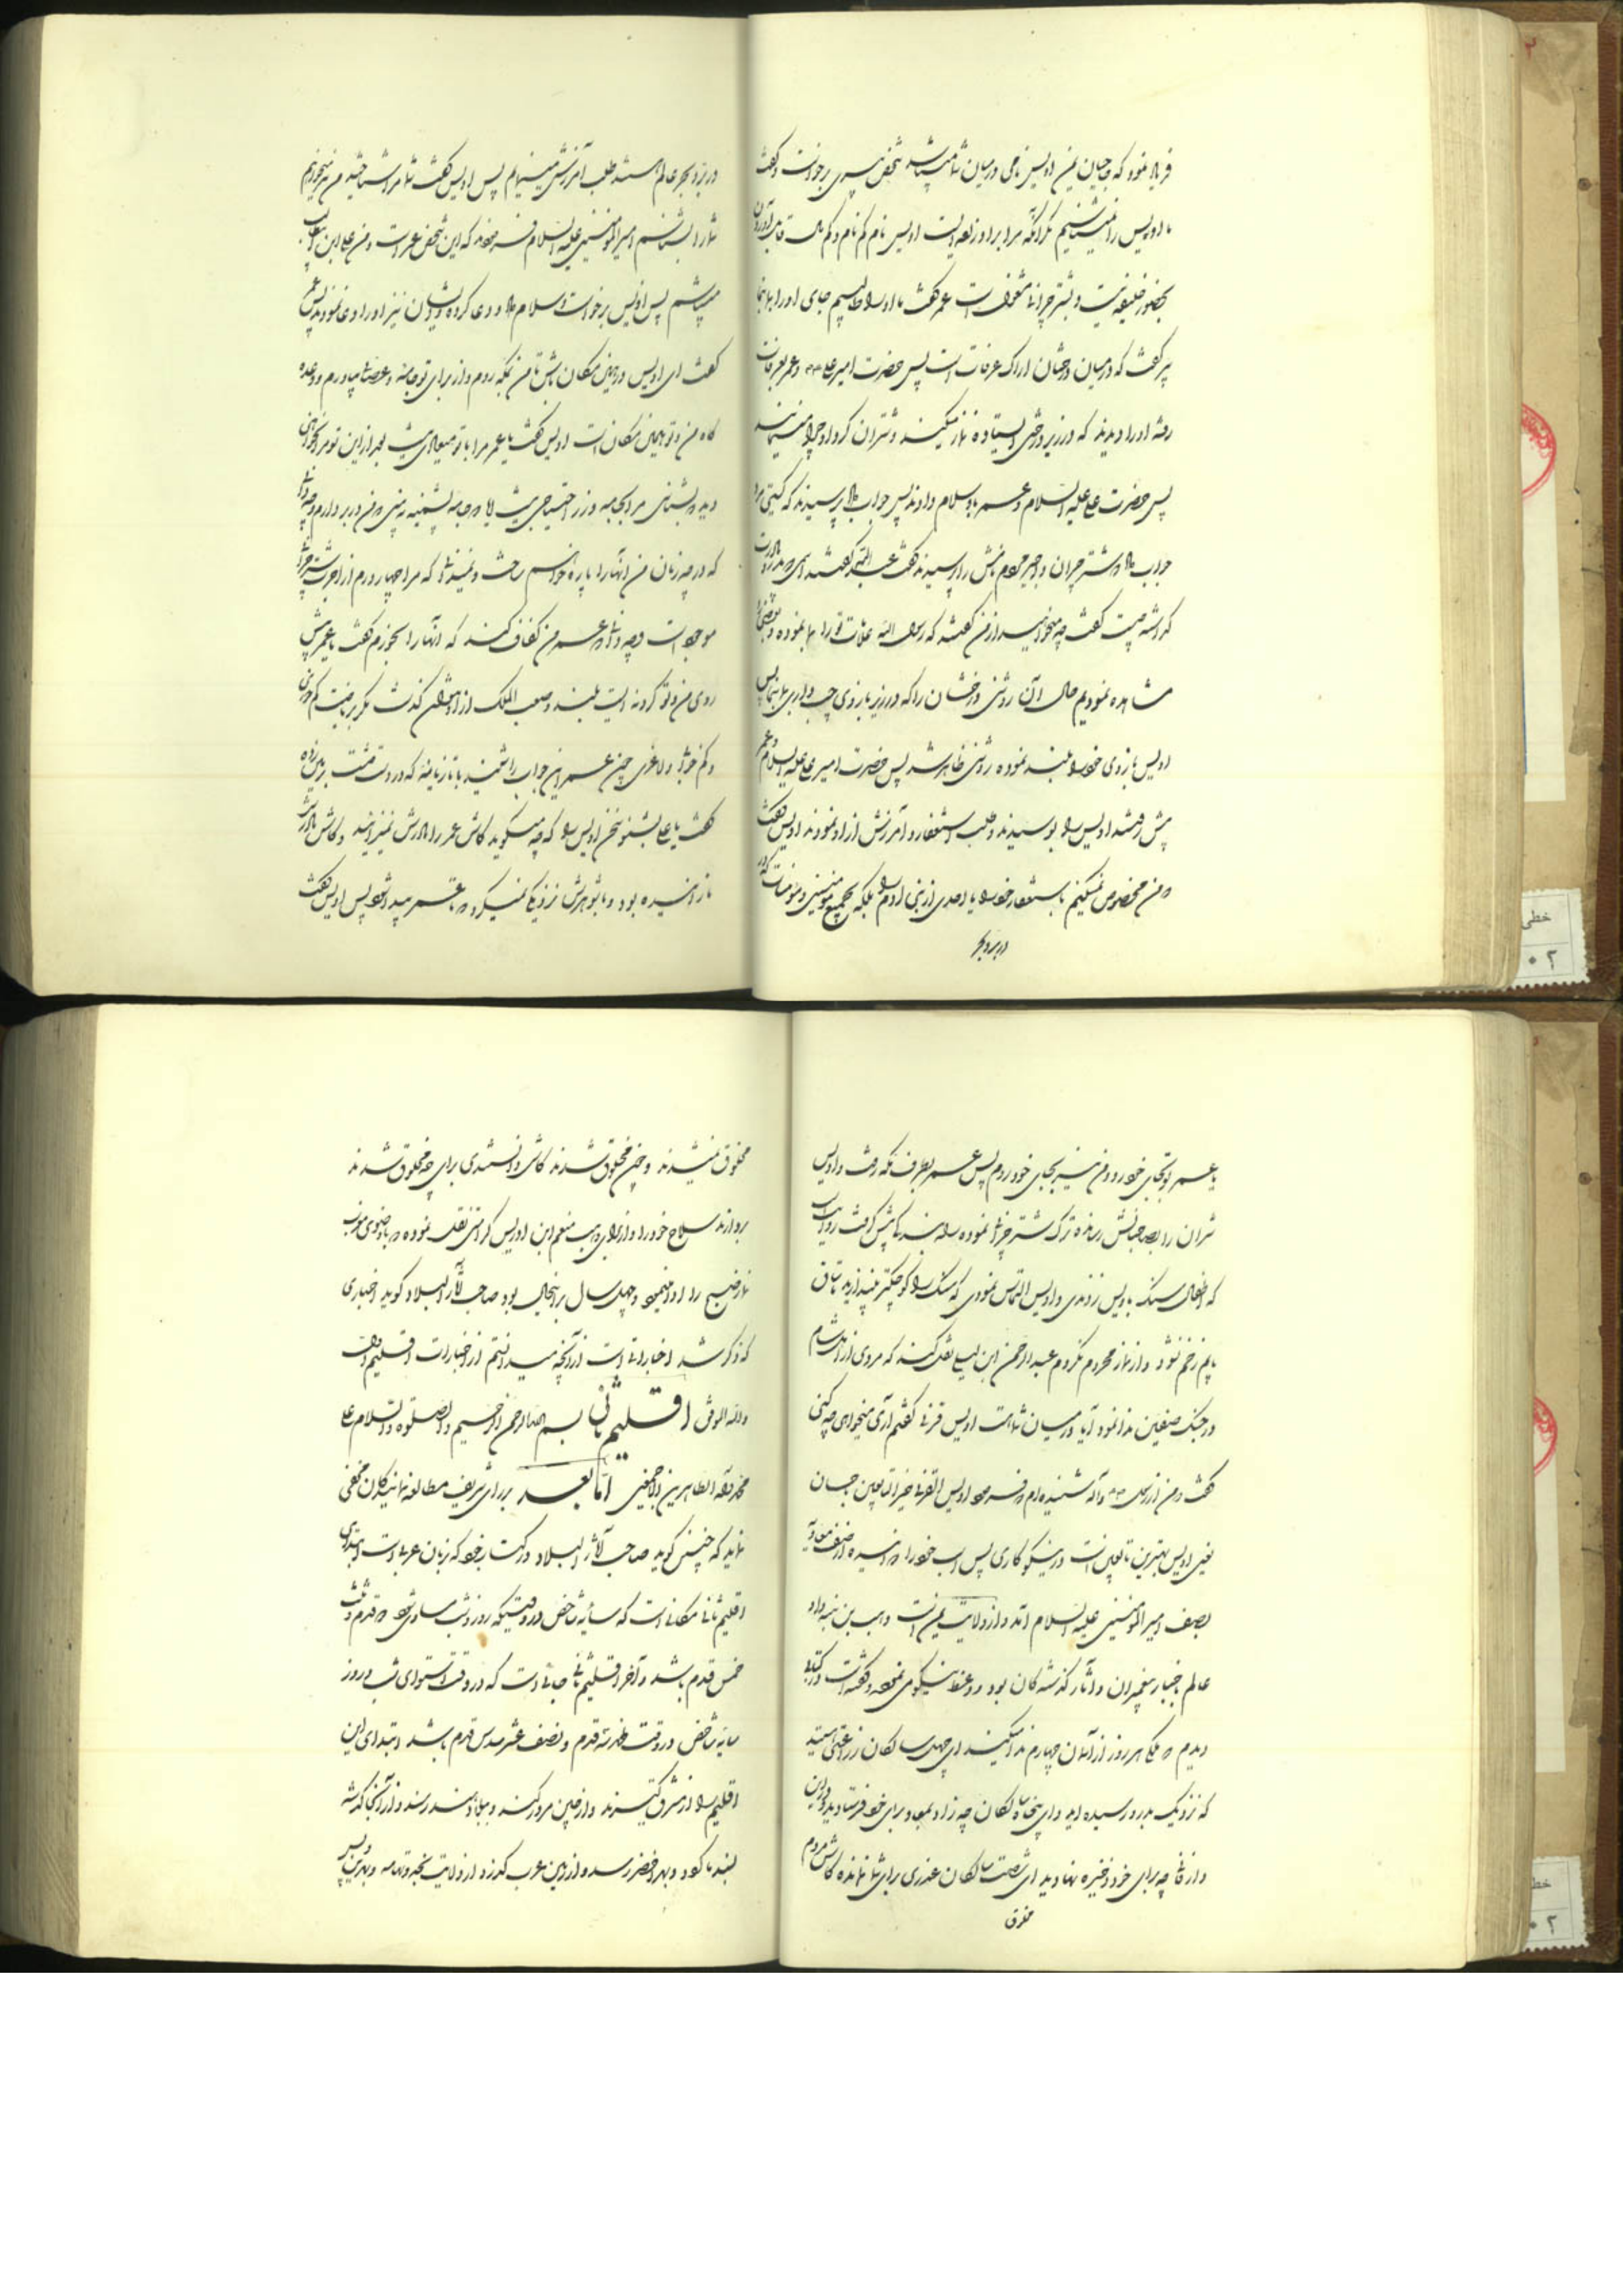 فریاد نمود که حاجیان یمن اویس نامی در میان شما میباشد شخص پیری برخواست و گفت
ما اویس را نمیشناسیم مگر آنکه مرا برادرزاده ایست اویس نام کم نام و کم مال قابل آوردن
بحضور خلیفه نیست و بشتر چرانی مشغول است عمر گفت ما او را طالبیم جای او را بما بنما
پیر گفت که در میان درختان اراک عرفات است پس حضرت امیر علی و عمر بعرفات
رفته او را دیدند که در زیر درختی ایستاده نماز میکند و شتران گرد او چرا مینمایند
پس حضرت علی علیه السلام و عمر باو سلام دادند پس جواب داد پرسیدند که کیستی مرد
جواب داد شتر چران و اجیر مردم نامش را پرسیدند گفت عبدالله گفتند نامی مادرت
گذاشته چیست گفت چه میخواهید از من گفتند که رسول الله علامات تو را بما نموده
مشاهده نمودیم حال آن روشنی درخشان را که در زیر بازوی چپ داری بما بنما پس
اویس بازوی خود را بلند نموده روشنی ظاهر شد پس حضرت امیر علی علیه السلام و عمر
پیش رفتند اویس را بوسیدند و طلب استغفار و آمرزش از او نمودند اویس گفت
من مخصوص نمیکنم باستغفار خود را یا احدی از بنی آدم را بلکه بجمیع مؤمنین و مؤمنات که در
در بر و بحر
در بر و بحر عالم هستند طلب آمرزش مینمایم پس اویس گفت شما مرا شناختید من نیز میخواهم
شما را بشناسم امیرالمؤمنین علیه السلام فرمودند که این شخص عمر است و من علی ابن ابیطالب
میباشم پس اویس برخواست و سلام داد و دعا کرد و ایشان نیز او را دعا نمودند پس عمر
گفت ای اویس در همین مکان باش تا من بمکه روم و از برای تو جامه و خرجی بیاورم و وعده
گاه من و تو همین مکان است اویس گفت یا عمر مرا با تو میعادی نیست بعد از این تو مرا نخواهی
دید و شناخت مرا بجامه و زر احتیاجی نیست آیا جامه پشمینه نمیبینی که من در بر دارم
که در چه زمان من آنها را پاره خواهم ساخت و نمیدانی که مرا چهار درم از اجرت شتر چرانی
موجود است و چه دانم عمر من کفاف کند که آنها را بخورم گفت یا عمر پیش
روی من و تو گردنه ایست بلند و صعب المسلک از او نتوان گذشت مگر بریاضت کم خوردن
و کم خوابی و لاغری چون عمر این جواب را شنید با تازیانه که در دست داشت بر زمین زده
گفت یا علی بشنو سخن اویس را که چه میگوید کاش عمر را مادرش نمیزائید و کاش مادرش
نازائیده بود و با شوهرش نزدیکی نمیکرد پس اویس گفت
یا عمر تو بجای خود رو و من نیز بجای خود روم پس عمر بطرف مکه رفت و اویس
شتران را بصاحبانش رسانده ترک شتر چرانی نموده راه بندگی پیش گرفت روایت است
که اطفال سنگ باویس زدندی و اویس التماس نمودی که سنگ را کوچکتر بیندازید تا ساق
پایم زخم نشود و از نماز محروم نگردم عبدالرحمن ابن لیلی نقل کند که مردی از اهل شام
در جنگ صفین ندا نمود آیا در میان شما است اویس قرنی گفتم آری میخواهی چه کنی
گفت من از رسول و آله شنیده ام فرمود اویس القرنی خیر التابعین باحسان
یعنی اویس بهترین تابعین است در نیکوکاری پس اسب خود را دوانیده از صف معاویه
بصف امیرالمؤمنین علیه السلام آمد و از ولایت یمن است وهب بن منبه و او
عالم باخبار پیغمبران و آثار گذشتگان بود و وعظ نیکو مینمود و گفته است در کتابی
دیدم که ملکی هر روز از آسمان چهارم ندا میکند ای چهل سالگان زراعتی هستید
که نزدیک بدرو رسیده اید و ای پنجاه سالگان چه زاد بمعاد برای خود فرستاده اید
و از فانی چه برای خود ذخیره نهادید ای شصت سالگان عذری برای شما نمانده کاش مردم
مخلوق
مخلوق نمیشدند و چون مخلوق شدند کاش دانستندی برای چه مخلوق شدند
بردارند سلاح خود را و از وهب منعم ابن ادریس نقل نموده که با وضوی
نماز صبح را ادا مینمود و چهل سال بر اینحال بود صاحب آثار البلاد گوید اخباری
که ذکر شد اخباراتی است از آنچه میدانستم از اخبارات اقلیم اول
والله الموفق اقلیم ثانی بسم الله الرحمن الرحیم والصلوة والسلام علی
محمد و آله الطاهرین اجمعین اما بعد بر رای شریف مطالعه نمایندگان مخفی
نماند که چنین گوید صاحب آثار البلاد در کتاب خود که بزبان عربی است ابتدای
اقلیم ثانی مکانی است که سایه شاخص در وقتیکه روز و شب مساوی شود دو قدم و ثلث
خمس قدم باشد و آخر اقلیم ثانی جائی است که در وقت استوای شب و روز
سایه شاخص در وقت ظهر سه قدم و نصف عشر سدس قدم باشد ابتدای این
اقلیم را از مشرق گیرند و از چین مرور کند و ببلاد هند رسد و از آنجا گذشته
بسند تا گردد و ببحر اخضر رسد و از زمین عرب گذرد از ولایت نجد و تهامه و بحرین